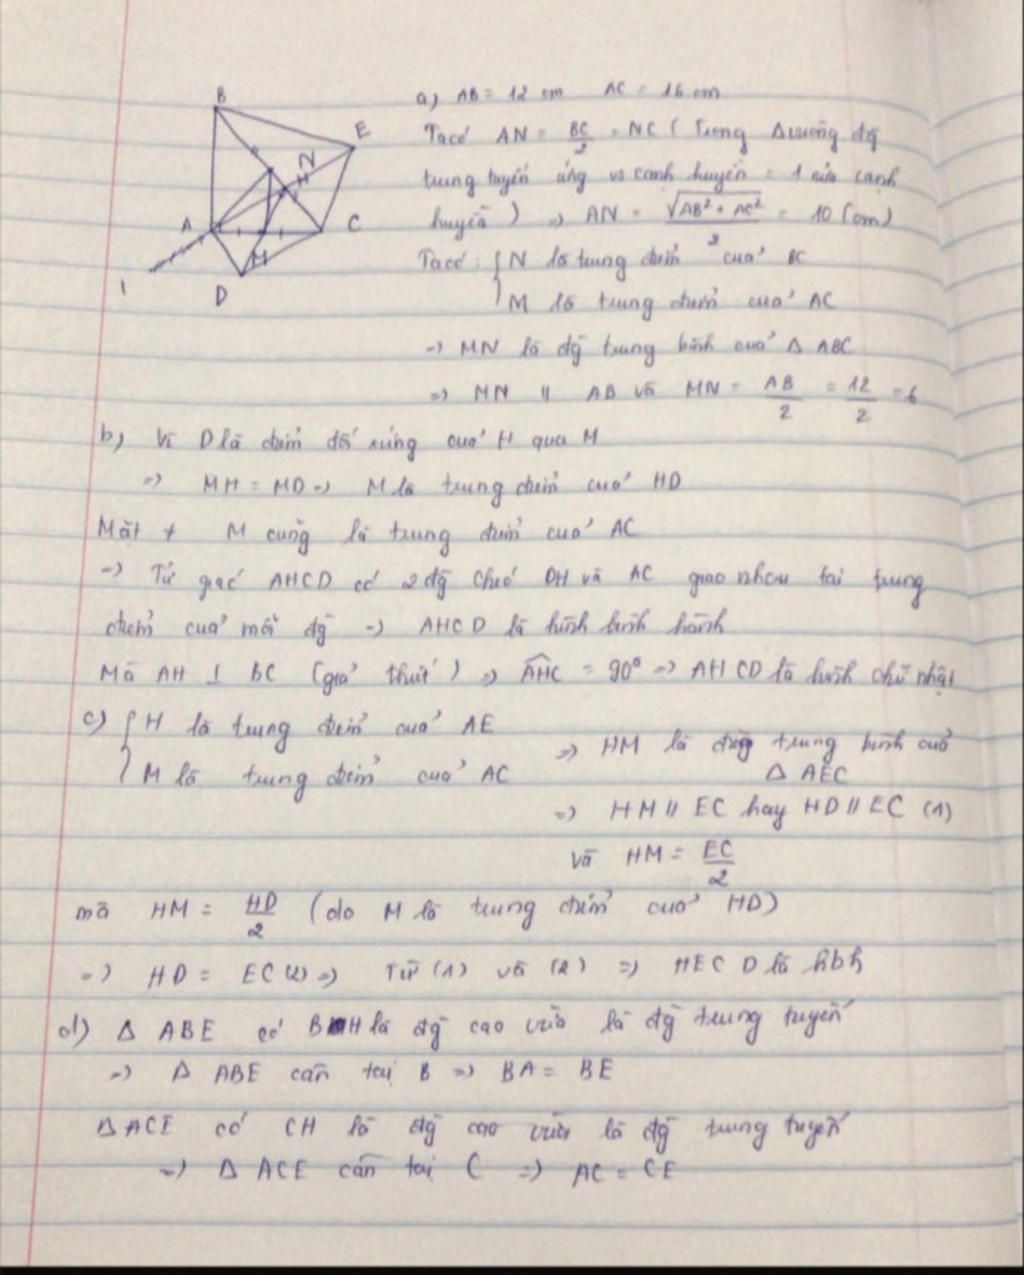 B
E
N
H
A
C
M
I
D
a) AB = 12 cm AC = 16 cm
Ta có AN = BC/2 = NC (Trong Δ vuông đg
trung tuyến ứng vs cạnh huyền = 1 nửa cạnh
huyền) => AN = √AB² + AC²/2 = 10 (cm)
Ta có: { N là trung điểm của BC
M là trung điểm của AC
=> MN là đg trung bình của Δ ABC
=> MN // AB và MN = AB/2 = 12/2 = 6
b) Vì D là điểm đối xứng của H qua M
=> MH = MD => M là trung điểm của HD
Mặt ≠ M cũng là trung điểm của AC
=> Tứ giác AHCD có 2 đg chéo DH và AC giao nhau tại trung
điểm của mỗi đg => AHCD là hình bình hành
Mà AH ⊥ BC (giả thiết) => AHC = 90° => AHCD là hình chữ nhật
c) { H là trung điểm của AE
M là trung điểm của AC
=> HM là đường trung bình của
Δ AEC
=> HM // EC hay HD // EC (1)
và HM = EC/2
mà HM = HD/2 (do M là trung điểm của HD)
=> HD = EC (2) => Từ (1) và (2) => HECD là hbh
d) Δ ABE có BH là đg cao vừa là đg trung tuyến
=> Δ ABE cân tại B => BA = BE
Δ ACE có CH là đg cao vừa là đg trung tuyến
=> Δ ACE cân tại C => AC = CE